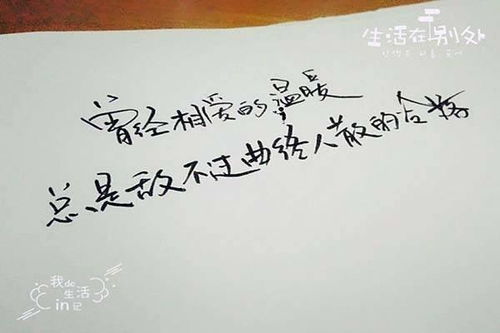 生活在别处
曾经相爱的温暖
总是敌不过曲终人散的合拢
我de
生活
in记